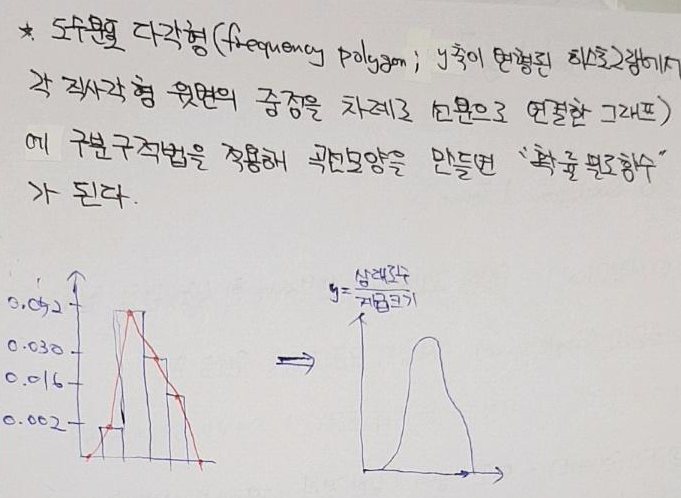 * 도수분포 다각형(frequency polygon; y축이 변형된 히스토그램에서
각 직사각형 윗면의 중점을 차례로 선분으로 연결한 그래프)
에 구분구적법을 적용해 곡선모양을 만들면 "확률밀도함수"
가 된다.
y = 상대도수
계급크기
0.052
0.030
0.016
0.002
⇒